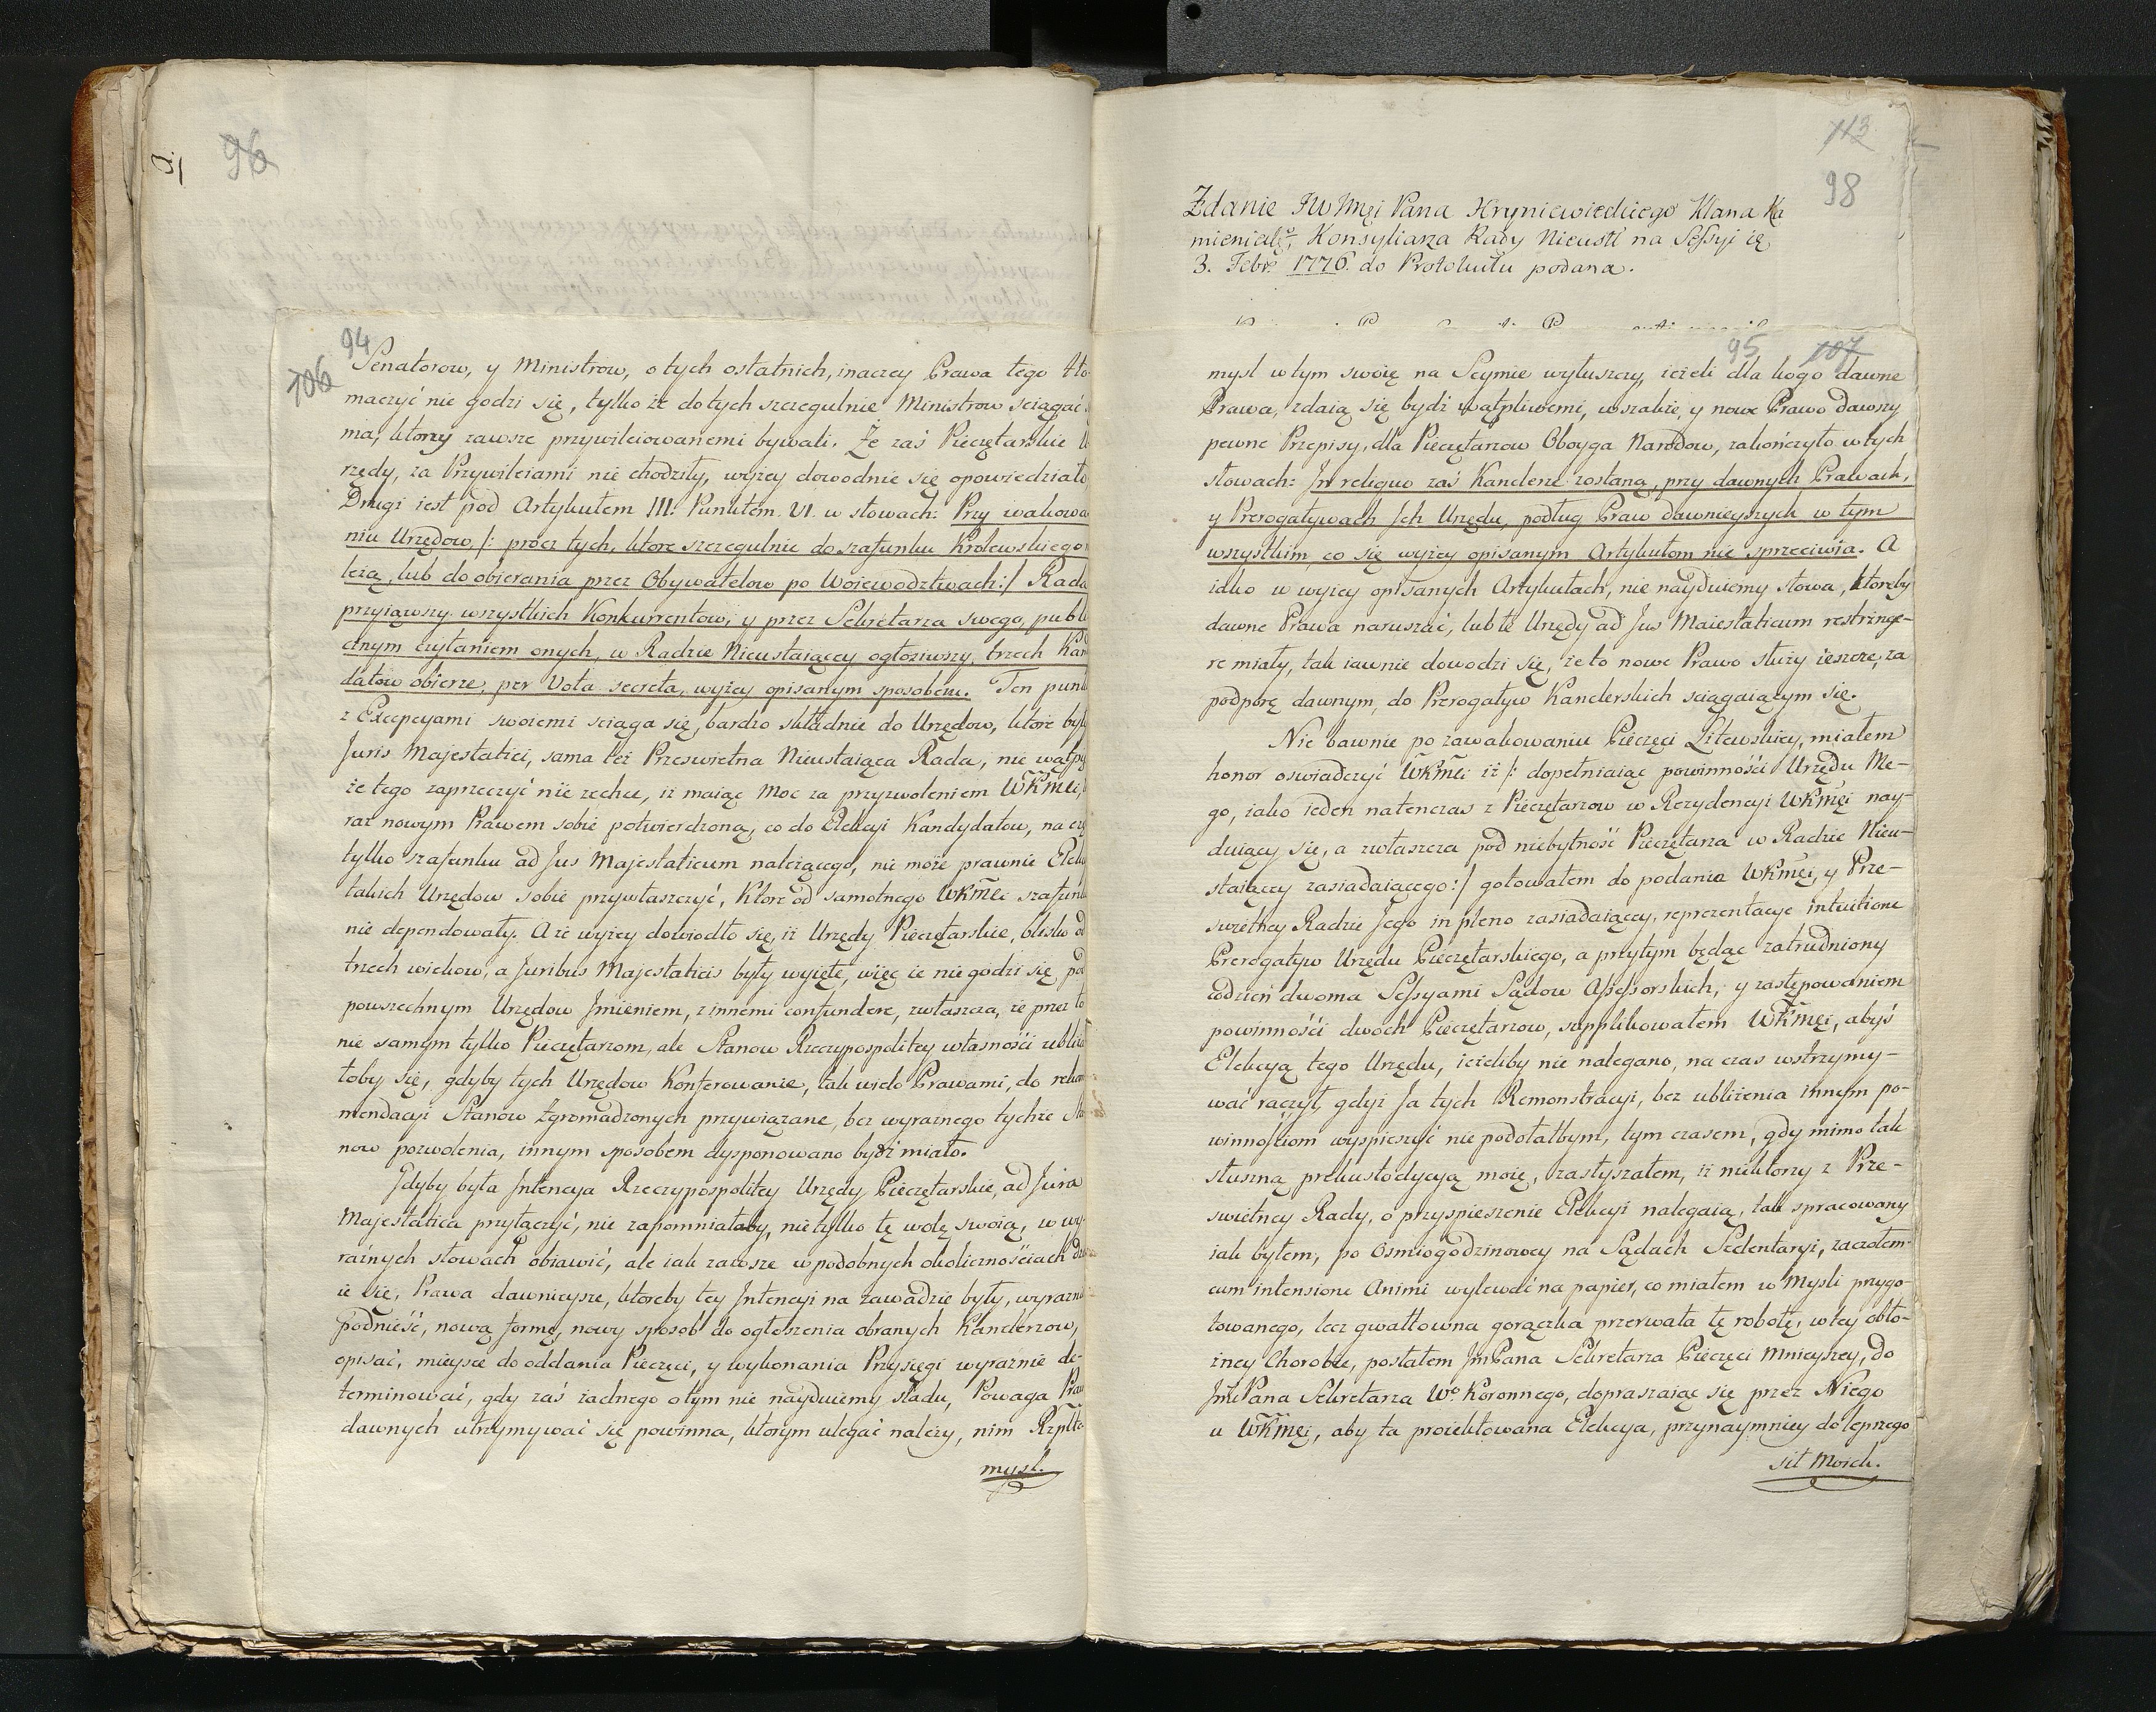 96
94
106
Senatorow, y Ministrow, o tych ostatnich, inaczey Prawa tego tło-
maczyć nie godzi się, tylko że do tych szczegulnie Ministrow sciągać
ma, ktorzy zawsze przywileiowanemi bywali. Że zaś Pieczętarskie U
rzędy, za Przywileiami nie chodziły, wyżey dowodnie się opowiedziało
Drugi iest pod Artykułem III. Punktem VI. w słowach: Przy wakowa
niu Urzędow, /: procz tych, ktore szczegulnie do szafunku Krolewskiego
leżą, lub do obierania przez Obywatelow po Woiewodztwach :/ Rada
przyiąwszy wszystkich Konkurrentow, y przez Sekretarza swego, publi
cznym czytaniem onych, w Radzie Nieustaiącey ogłosiwszy, trzech Kan
datow obierze, per Vota secreta, wyżey opisanym sposobem. Ten punk
z Excepcyami swoiemi sciąga się, bardzo składnie do Urzędow, ktore były
Juris Majestatici, sama też Przeswietna Nieustaiąca Rada, nie wątpię
że tego zaprzeczyć nie zechce, iż maiąc Moc za przyzwoleniem WKMci,
raz nowym Prawem sobie potwierdzoną, co do Elekcyi Kandydatow, na
tylko szafunku ad Jus Majestaticum należącego, nie może prawnie Elek
takich Urzędow sobie przywłaszczyć, Ktore od samotnego WKMci szafunku
nie dependowały. A że wyżey dowiodło się, iż Urzędy Pieczętarskie, blisko od
trzech wiekow, a Juribus Majestaticis były wyięte, więc ie nie godzi się, pod
powszechnym Urzędow Jmieniem, z innemi confundere, zwłaszcza, że przez to
nie samym tylko Pieczętarzom, ale Stanow Rzeczypospolitey własności ubliża
łoby się, gdyby tych Urzędow Konferowanie, tak wielo Prawami, do rekom
mendacyi Stanow Zgromadzonych przywiązane, bez wyraznego tychże Sta
now pozwolenia, innym sposobem dysponowano bydź miało.
Gdyby była Jntencya Rzeczypospolitey Urzędy Pieczętarskie, ad Jura
Majestatica przyłączyć, nie zapomniałaby, nie tylko tę wolę swoią, w wy
raźnych słowach obiawić, ale iak zawsze w podobnych okolicznościach dzi
ie się, Prawa dawnieysze, ktoreby tey Jntencyi na zawadzie były, wyraznie
podnieść, nową formę, nowy sposob do ogłoszenia obranych Kanclerzow,
opisać, mieysce do oddania Pieczęci, y wykonania Przysięgi wyraznie de-
terminować, gdy zaś żadnego o tym nie nayduiemy sładu, Powaga Praw
dawnych utrzymywać się powinna, ktorym ulegać należy, nim Rzplta
mysl.
113
98
Zdanie JW Jmci Pana Hryniewieckiego Kłana Ka
mieniec., Konsyliarza Rady Nieust na Sessyi ią
3. Febr. 1776. do Protokułu podana.
95
107
mysl w tym swoię na Seymie wyłuszczy, ieżeli dla kogo dawne
Prawa, zdaią się bydź wątpliwemi, wszakże, y nowe Prawo dawszy
pewne Przepisy, dla Pieczętarzow Oboyga Narodow, zakończyło w tych
słowach: Jn reliquo zaś Kanclerze zostaną, przy dawnych Prawach,
y Prerogatywach Jch Urzędu, podług Praw dawnieyszych w tym
wszystkim, co się wyżey opisanym Artykułom nie sprzeciwia. A
iako w wyżey opisanych Artykułach, nie nayduiemy słowa, ktoreby
dawne Prawa naruszać, lub te Urzędy ad Jus Maiestaticum restringe-
re miały, tak iawnie dowodzi się, że to nowe Prawo służy ieszcze, za
podporę dawnym, do Prerogatyw Kanclerskich sciągaiącym się.
Nie bawnie po zawakowaniu Pieczęci Litewskiey, miałem
honor oswiadczyć WKMci iż /: dopełniaiąc powinności Urzędu Me-
go, iako ieden natenczas z Pieczętarzow w Rezydencyi WKMci nay-
duiący się, a zwłaszcza pod niebytność Pieczętarza w Radzie Nieu-
staiącey zasiadaiącego :/ gotowałem do podania WKMci, y Prze-
swietney Radzie Jego in pleno zasiadaiącey, reprezentacye intuitione
Prerogatyw Urzędu Pieczętarskiego, a przytym będąc zatrudniony
codzień dwoma Sessyami Sądow Assessorskich, y zastępowaniem
powinności dwoch Pieczętarzow, supplikowałem WKMci, abyś
Elekcyą tego Urzędu, ieżeliby nie nalegano, na czas wstrzymy-
wać raczył, gdyż Ja tych Remonstracyi, bez ubliżenia innym po-
winnościom wyspieszyć nie podołałbym, tym czasem, gdy mimo tak
słuszną prekustodycyą moię, zasłyszałem, iż niektorzy z Prze-
swietney Rady, o przyspieszenie Elekcyi nalegaią, tak spracowany
iak byłem, po Osmiogodzinowey na Sądach Sedentaryi, zacząłem
cum intensione Animi wylewać na papier, co miałem w Mysli przygo-
towanego, lecz gwałtowna gorączka przerwała tę robotę, w tey obło-
żney Chorobie, posłałem JmPana Sekretarza Pieczęci Mnieyszey, do
JmPana Sekretarza Wo Koronnego, dopraszaiąc się przez Niego
u WKMci, aby ta proiektowana Elekcya, przynaymniey do lepszego
sił Moich.